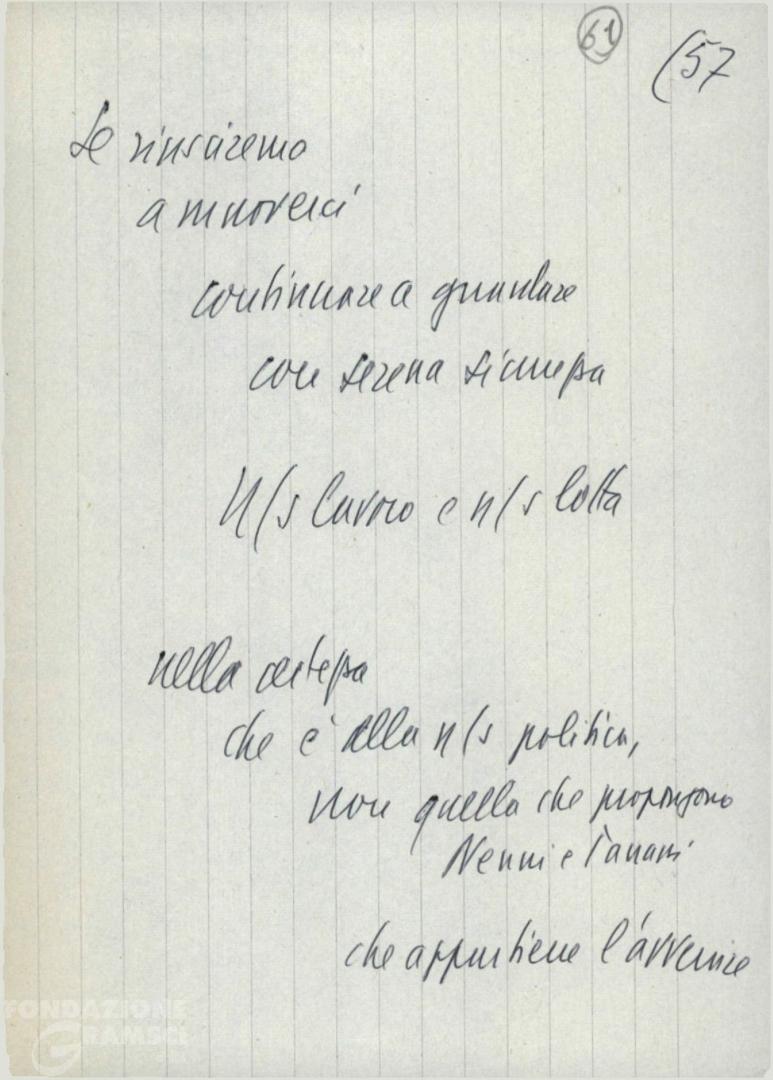 61
(57
Se riusciremo
a muoverci
continuare a guardare
con serena sicurezza
N/s lavoro e n/s lotta
nella certezza
che è alla n/s politica,
non quella che propongono
Nenni e Tanassi
che appartiene l'avvenire
FONDAZIONE
GRAMSCI